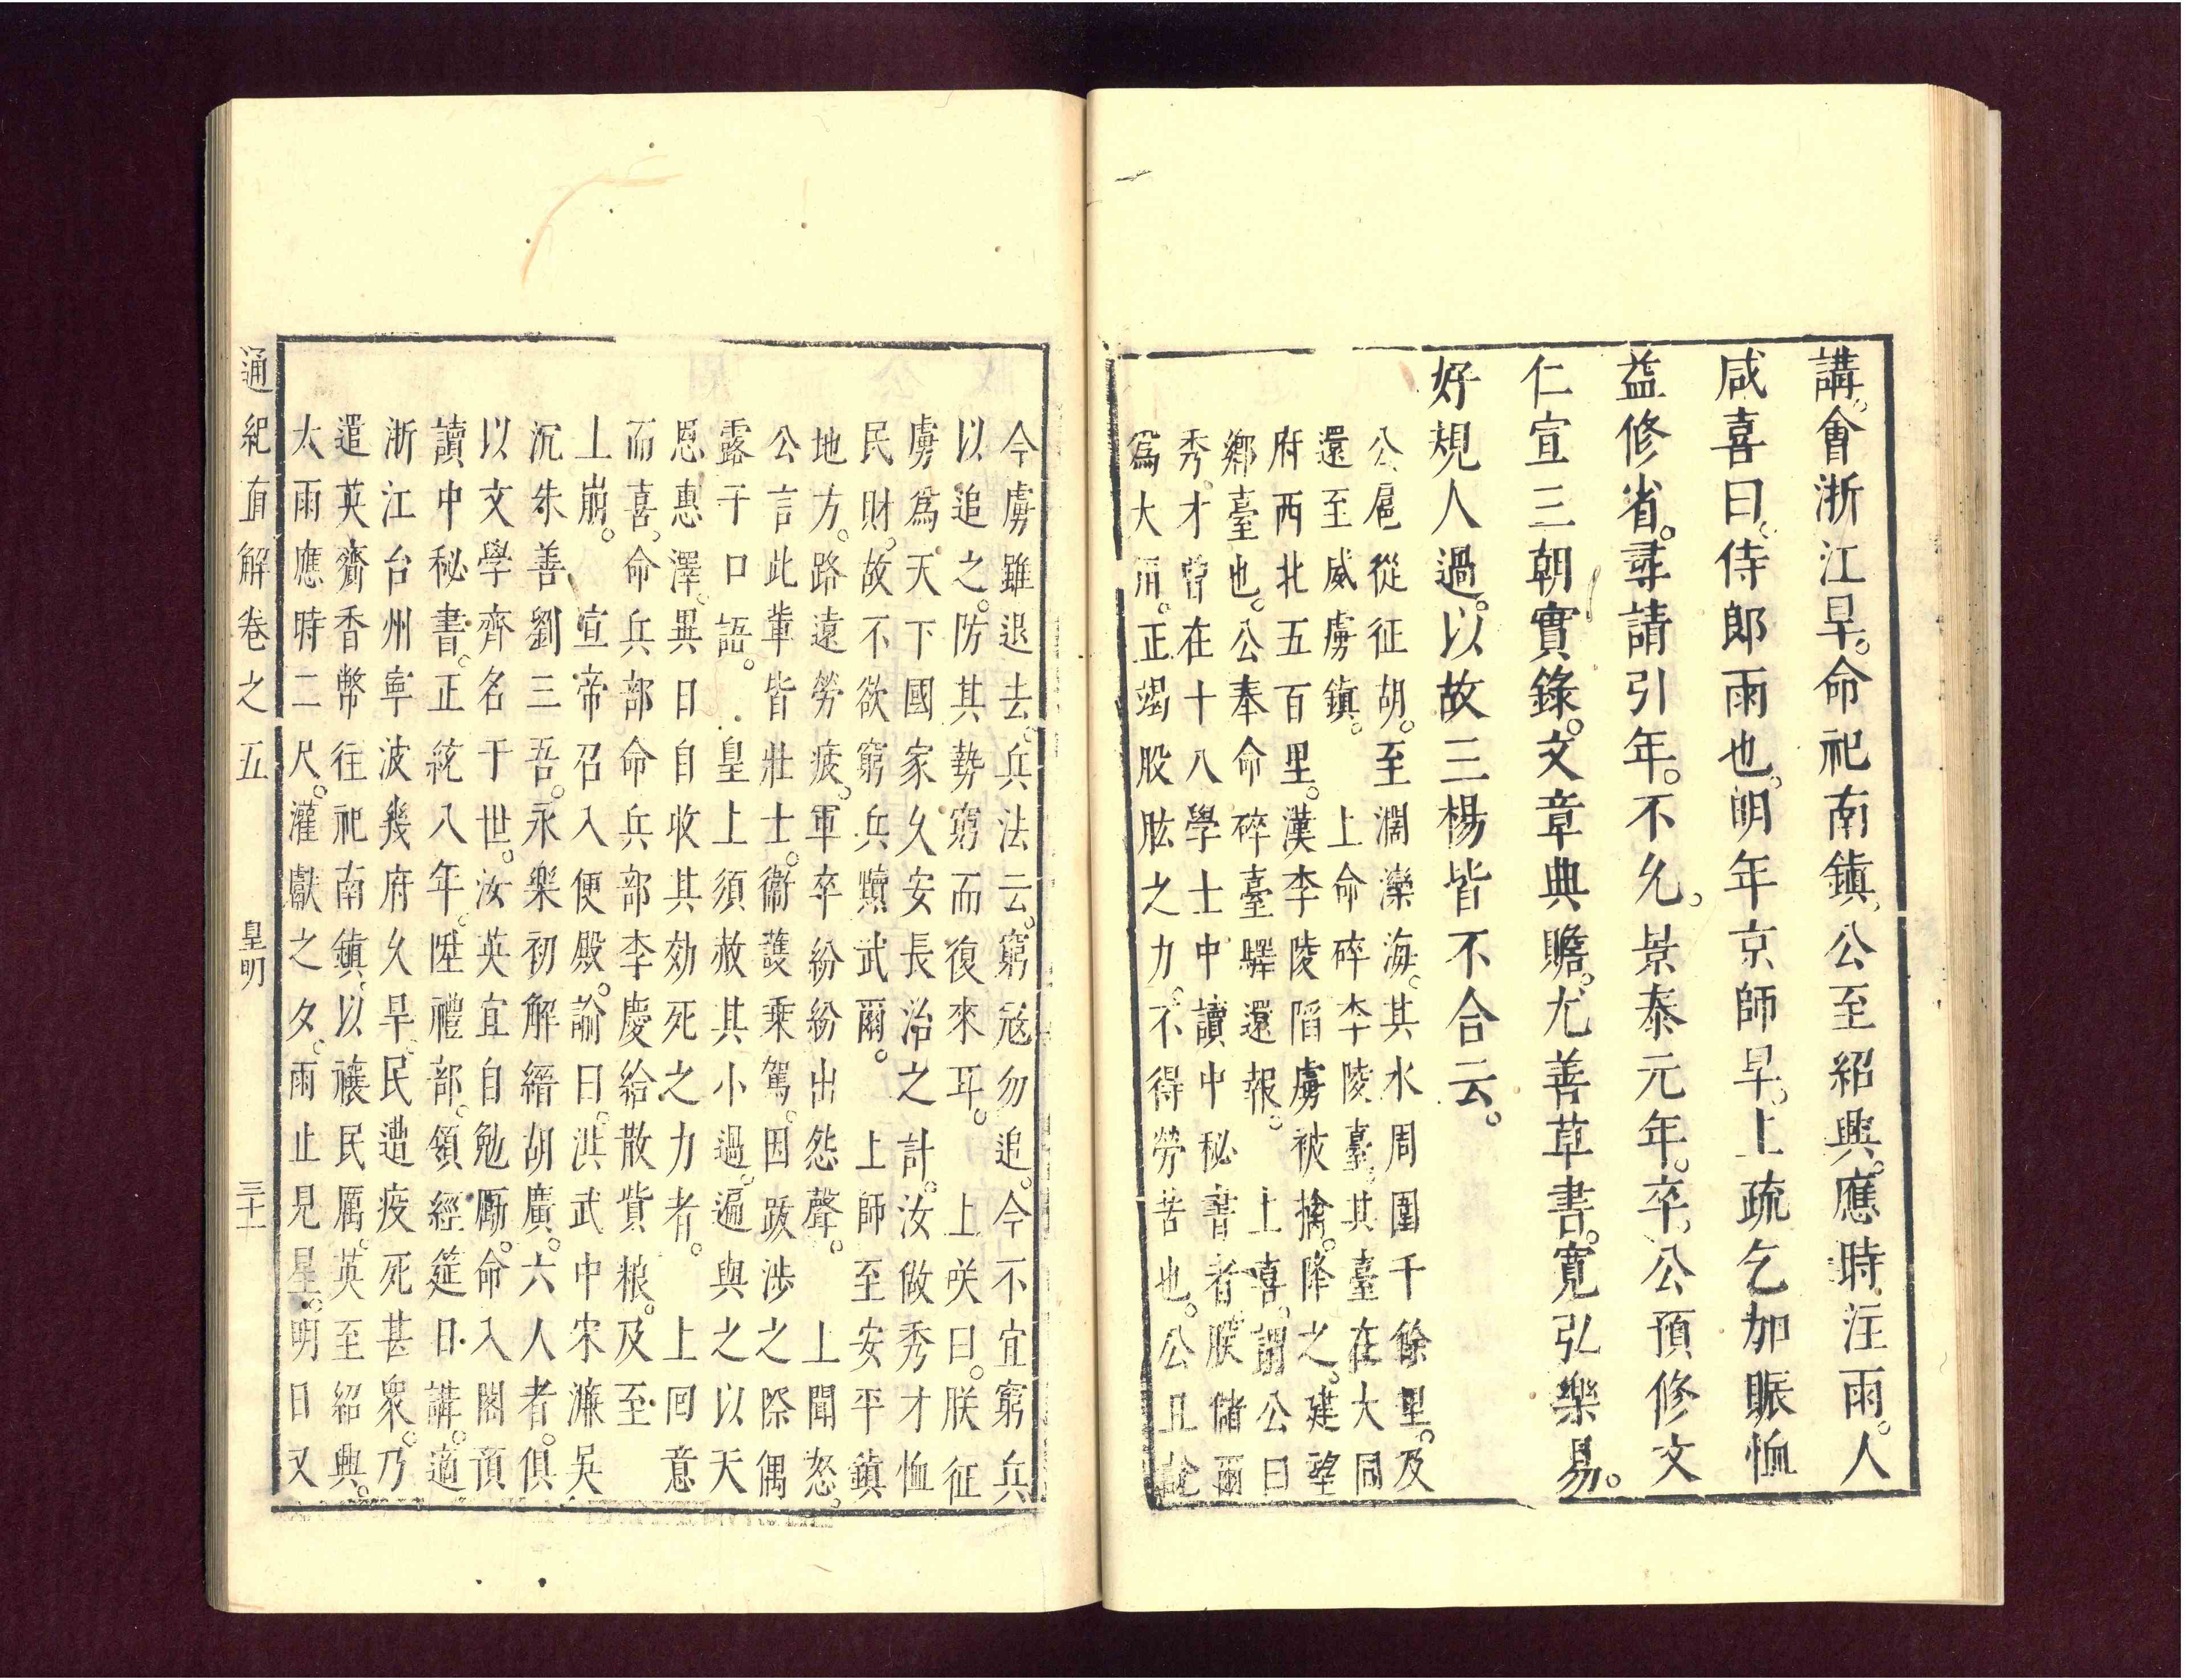 講。會浙江旱。命祀南鎮。公至紹興。應時注雨。人
咸喜曰。侍郎雨也。明年京師旱。上疏乞加賑恤
益修省。尋請引年。不允。景泰元年。卒。公預修文
仁宣三朝實錄。文章典贍。尤善草書。寬弘樂易。
好規人過。以故三楊皆不合云。
公扈從征胡。至濶灤海。其水周圍千餘里。及
還至威虜鎮。上命碎李陵臺。其臺在大同
府西北五百里。漢李陵陷虜被擒。降之。建望
鄉臺也。公奉命碎臺驛還報。上喜。謂公曰
秀才曾在十八學士中讀中秘書者。朕儲爾
爲大用。正竭股肱之力。不得勞苦也。公且論
今虜雖退去。兵法云。窮冦勿追。今不宜窮兵
以追之。防其勢窮而復來耳。上咲曰。朕征
虜爲天下國家久安長治之計。汝做秀才恤
民財。故不欲窮兵黷武爾。上師至安平鎮
地方。路遠勞疲。軍卒紛紛出怨聲。上聞怒。
公言此輩皆壯士。衞護乘駕。因跋涉之際偶
露于口語。皇上須赦其小過。遍與之以天
恩惠澤。異日自收其効死之力者。上回意
而喜。命兵部命兵部李慶給散貲粮。及至
上崩。宣帝召入便殿。諭曰。洪武中宋濂吳
沉朱善劉三吾。永樂初解縉胡廣。六人者。俱
以文學齊名于世。汝英宜自勉勵。命入閣預
讀中秘書。正統八年。陞禮部。領經筵日講。適
浙江台州寧波幾府久旱。民遭疫死甚衆。乃
遣英齎香幣往祀南鎮。以禳民厲。英至紹興。
太雨應時二尺。灌獻之夕。雨止見星。明日又
通紀直解卷之五 皇明 三十一